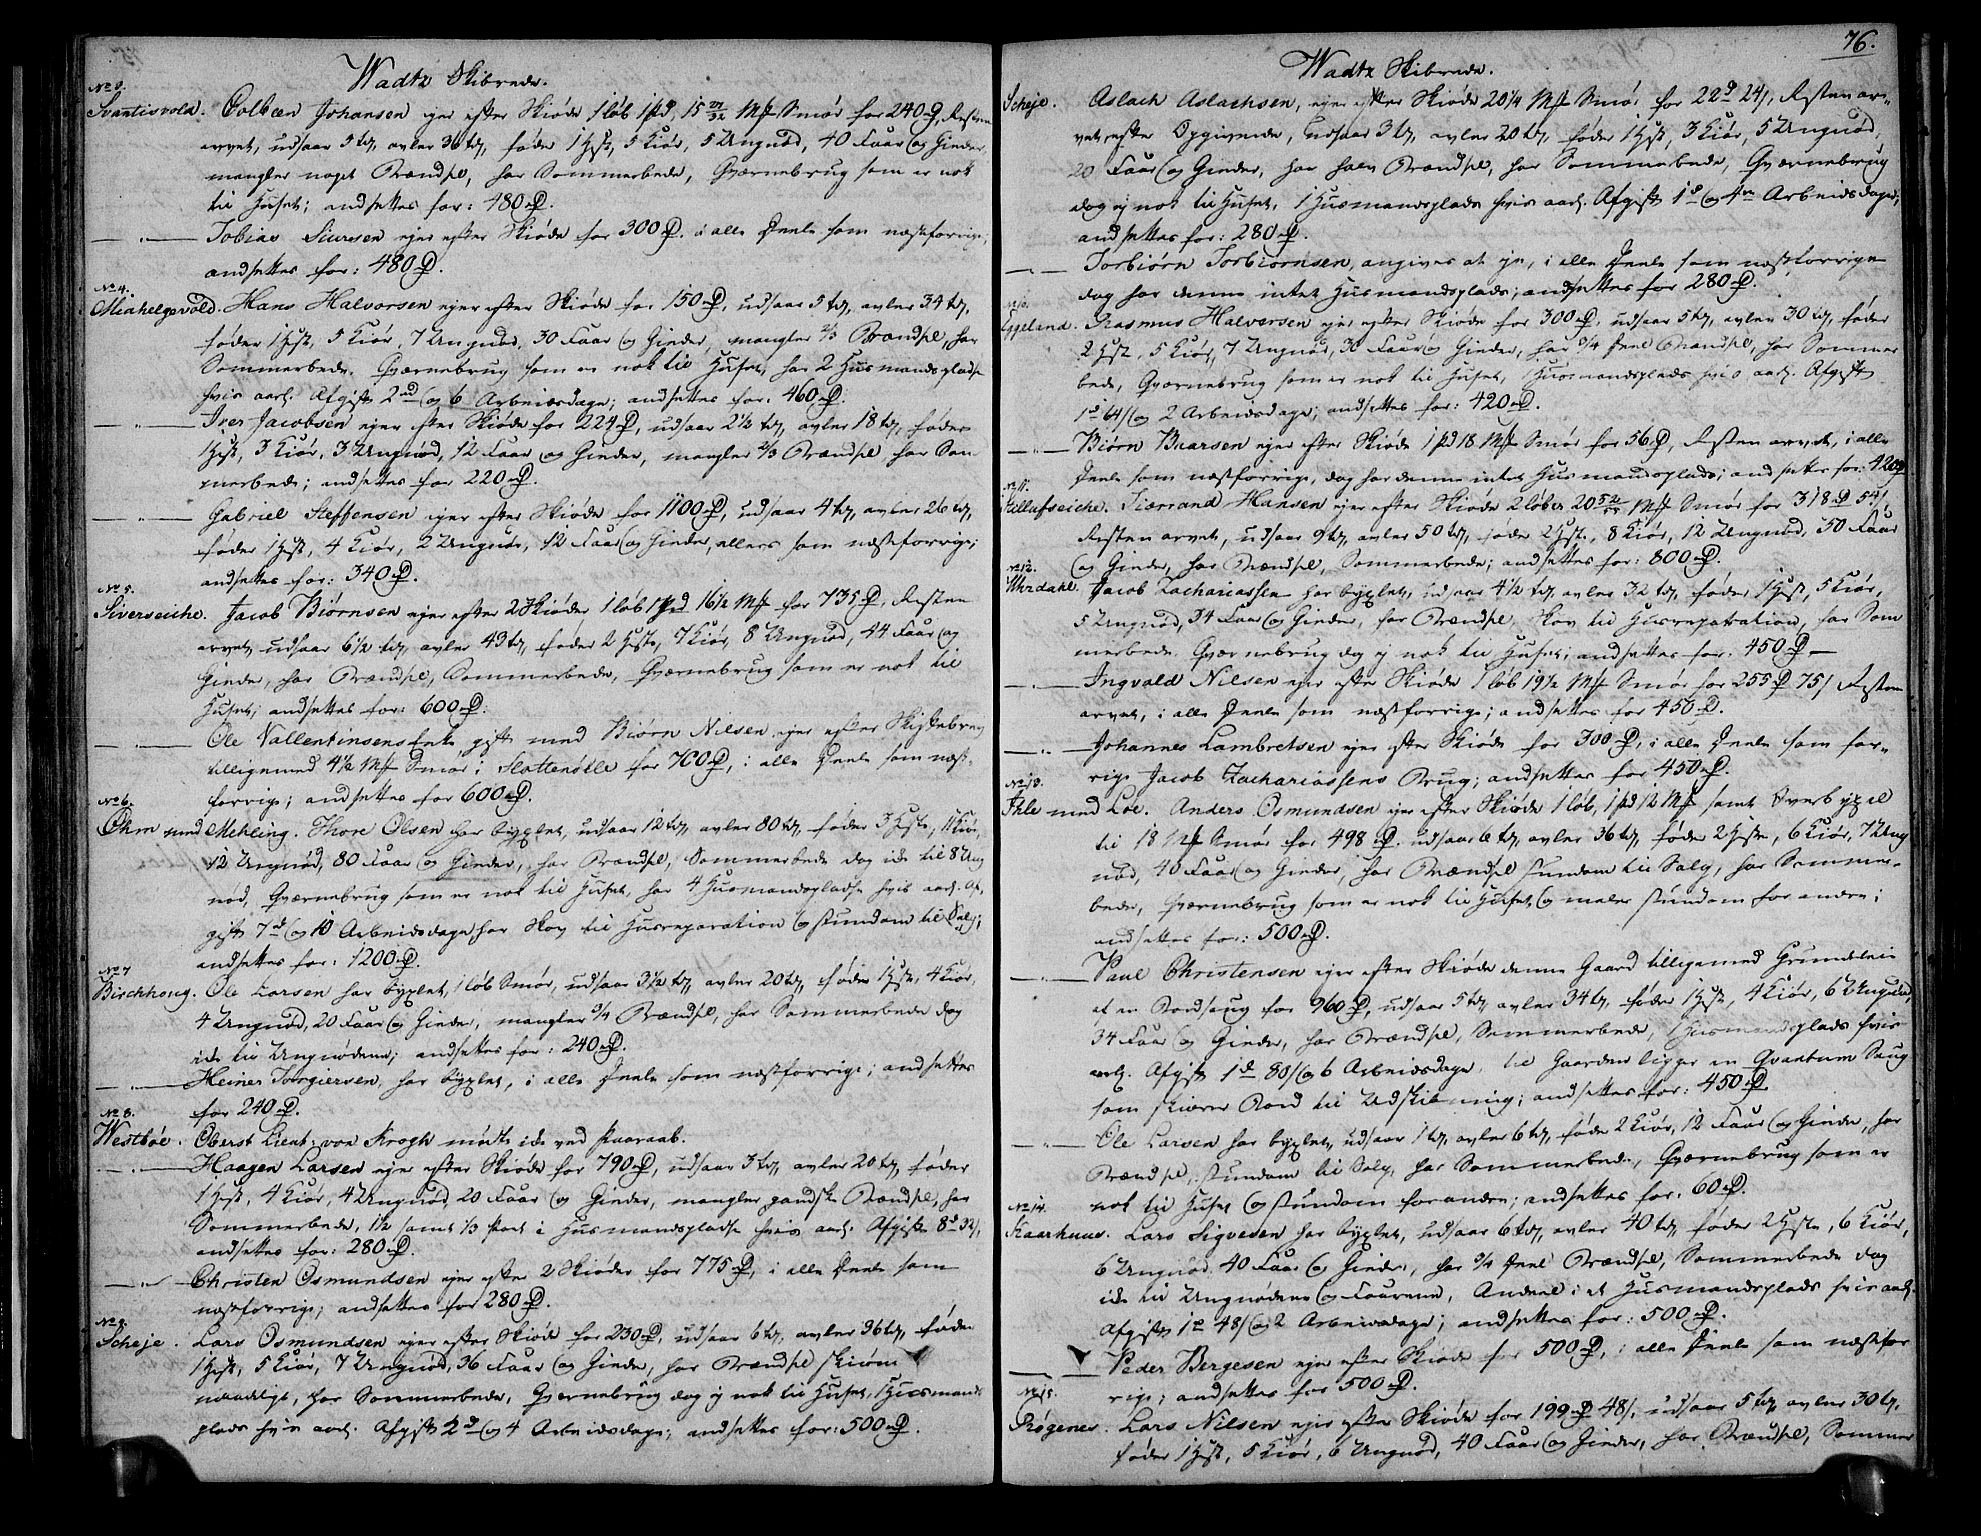 Wadtz Skibrede.
No 3.
Svantisvold. Colbeen Johansen ejer efter Skiøde 1 løb 1 pd, 15 Mk Smør for 240 D, Resten
arvet, udsaar 5 td, avler 36 td, føder 1 Hest, 5 Kiør, 5 Ungnød, 40 Faar og Gieder,
mangler noget Brændsel, har Sommerbede, Qværnebrug som er nok
til Huset; andsettes for: 480 D.
— " — Tobias Siursen ejer efter Skiøde for 300 D. i alle Deele som næstforrige,
andsettes for: 480 D.
No 4.
Miahelgsvold. Hans Halvorsen ejer efter Skiøde for 150 D, udsaar 5 td, avler 34 td,
føder 1 Hest, 5 Kiør, 7 Ungnød, 30 Faar og Gieder, mangler 2/3 Brændsel, har
Sommerbede. Qværnebrug som er nok til Huset, har 2 Huusmandspladse
hvis aarl. Afgift 2 D og 6 Arbeidsdage; andsettes for: 460 D.
— " — Iver Jacobsen ejer efter Skiøde for 224 D, udsaar 2 1/2 td, avler 18 td, føder
1 Hest, 3 Kiør, 3 Ungnød, 12 Faar og Gieder, mangler 2/3 Brændsel har Som-
merbede; andsettes for 220 D.
— " — Gabriel Steffensen ejer efter Skiøde for 1100 D, udsaar 4 td, avler 26 td,
føder 1 Hest, 4 Kiør, 2 Ungnød, 12 Faar og Gieder, ellers som næstforrige;
andsettes for: 340 D.
No 5.
Siverseiche. Jacob Biørnsen ejer efter 2 Skiøder 1 løb 1 pd 16 1/2 Mk for 735 D, Resten
arvet, udsaar 6 1/2 td, avler 43 td, føder 2 Heste, 7 Kiør, 8 Ungnød, 44 Faar og
Gieder, har Brændsel, Sommerbede, Qværnebrug som er nok til
Huset; andsettes for: 600 D.
— " — Ole Vallentinsens Enke, gift med Biørn Nilsen ejer efter Skiftebrev
tilligemed 4 1/2 Mk Smør i Slottenølle for 700 D, i alle Deele som næst-
forrige; andsettes for 600 D.
No 6.
Ohm med Mehling. Thore Olsen har byxlet, udsaar 12 td, avler 80 td, føder 3 Heste, 11 Kiør,
12 Ungnød, 80 Faar og Gieder, har Brændsel, Sommerbede dog ike til 8 Ung
nød, Qværnebrug som er nok til Huset, har 4 Huusmandspladse hvis aarl. Af-
gift 7 D og 10 Arbeidsdage har Skov til Huusreparation og stundom til Salg;
andsettes for: 1200 D.
No 7
Birchhoug. Ole Larsen har byxlet, 1 løb Smør, udsaar 3 1/2 td, avler 20 td, føder 1 Hest, 4 Kiør,
4 Ungnød, 20 Faar og Gieder, mangler 3/4 Brændsel, har Sommerbede dog
ike til Ungnødene; andsettes for: 240 D.
— " — Heiner Torgiersen, har byxlet, i alle Deele som næstforrige; andsettes
for 240 D.
No 8.
Westbøe. Oberst Lieut: von Krogh mødte ike ved Paaraab.
— " — Haagen Larsen ejer efter Skiøde for 790 D, udsaar 3 td, avler 20 td, føder
1 Hest, 4 Kiør, 4 Ungnød, 20 Faar og Gieder, mangler gandske Brændsel, har
Sommerbede, 1 1/2 samt 1/3 Part i Huusmandspladse hvis aarl. Afgift 8 D 32 s,
andsettes for: 280 D.
— " — Christen Osmundsen ejer efter 2 Skiøder for 775 D, i alle Deele som
næstforrige; andsettes for 280 D.
No 9.
Scheje. Lars Osmundsen ejer efter Skiøde for 230 D, udsaar 6 td, avler 36 td, føder
1 Hest, 5 Kiør, 7 Ungnød, 36 Faar og Gieder, har Brændsel skiønt
naadligt, har Sommerbede, Qværnebrug dog ej nok til Huset, 1 Huusmands
plads hvis aarl. Afgift 2 D og 4 Arbeidsdage; andsettes for: 500 D.
76.
Wadtz Skibrede.
Scheje. Aslach Aslachsen, ejer efter Skiøde 20 1/4 Mk Smør for 22 D 24 s, Resten ar-
vet efter Opgivende, udsaar 3 td, avler 20 td, føder 1 Hest, 3 Kiør, 5 Ungnød,
20 Faar og Gieder, har halv Brændsel, har Sommerbede, Qværnebrug
dog ej nok til Huset, 1 Huusmandsplads hvis aarl. Afgift 1 D og 4 Arbeidsdage;
andsettes for: 280 D.
— " — Torbiørn Torbiørnsen, angives at eje, i alle Deele som næstforrige
dog har denne intet Huusmandsplads; andsettes for 280 D.
No 10.
Eggeland. Rasmus Halversen ejer efter Skiøde for 300 D, udsaar 5 td, avler 30 td, føder
2 Heste, 5 Kiør, 7 Ungnød, 30 Faar og Gieder, har 3/4 Deel Brændsel, har Sommer
bede, Qværnebrug som er nok til Huset, 1 Huusmandsplads hvis aarl. Afgift
1 D 64 s og 2 Arbeidsdage; andsettes for: 420 D.
— " — Biørn Baarsen ejer efter Skiøde 1 pd 18 Mk Smør for 56 D, Resten arvet, i alle
Deele som næstforrige, dog har denne intet Huusmandsplads; andsettes for: 420 D
No 11.
Killufseiche. Tiærand Hansen ejer efter Skiøde 2 løber 20 Mk Smør for 318 D 54 s,
Resten arvet, udsaar 9 td, avler 50 td, føder 2 Heste, 8 Kiør, 12 Ungnød, 50 Faar
og Gieder, har Brændsel, Sommerbede; andsettes for: 800 D.
No 12.
Uhrdahl. Jacob Zachariassen har byxlet, udsaar 4 1/2 td, avler 32 td, føder 1 Hest, 5 Kiør,
5 Ungnød, 34 Faar og Gieder, har Brændsel, Skov til Huusreparation, har Som
merbede. Qværnebrug dog ej nok til Huset; andsettes for: 450 D —
— " — Ingvald Nilsen ejer efter Skiøde 1 løb 19 1/2 Mk Smør for 255 D 75 s Resten
arvet, i alle Deele som næstforrige; andsettes for 450 D.
— " — Johannes Lambretsen ejer efter Skiøde for 300 D, i alle Deele som for-
rige Jacob Zachariassens Brug; andsettes for 450 D.
No 13.
Ihle med Løe. Anders Osmundsen ejer efter Skiøde 1 løb, 1 pd 12 Mk samt Overbyxel
til 18 Mk Smør for 498 D. udsaar 6 td, avler 36 td, føder 2 Heste, 6 Kiør, 7 Ung
nød, 40 Faar og Gieder, har Brændsel stundom til Salg, har Sommer-
bede, Qværnebrug som er nok til Huset og maler stundom for andre;
andsettes for: 500 D.
— " — Paul Christensen ejer efter Skiøde denne Gaard tilligemed Grundeleie
af en Bordsaug for 960 D, udsaar 5 td, avler 34 td, føder 1 Hest, 4 Kiør, 6 Ungnød,
34 Faar og Gieder, har Brændsel, Sommerbede, 1 Huusmandsplads hvis
aarl. Afgift 1 D 80 s og 6 Arbeidsdage, til Gaarden ligger en Qvantum Saug
som skiærer Bord til Udskibning; andsettes for: 450 D.
— " — Ole Larsen har byxlet, udsaar 1 td, avler 6 td, føder 2 Kiør, 12 Faar og Gieder, har
Brændsel, stundom til Salg, har Sommerbede, Qværnebrug som er
nok til Huset og stundom for andre; andsettes for: 60 D.
No 14.
Kaarhuus. Lars Sigvesen har byxlet, udsaar 6 td, avler 40 td, føder 2 Heste, 6 Kiør,
6 Ungnød, 40 Faar og Gieder, har 3/4 Deel Brændsel, Sommerbede dog
ike til Ungnødene og Faarene, Andeel i et Huusmandsplads hvis aarl.
Afgift 1 D 48 s og 2 Arbeidsdage; andsettes for: 500 D.
— — Peder Bergesen ejer efter Skiøde for 500 D, i alle Deele som næstfor
rige; andsettes for 500 D.
No 15.
Røgenes. Lars Nilsen ejer efter Skiøde for 199 D 48 s, udsaar 5 td, avler 30 td,
føder 1 Hest, 5 Kiør, 6 Ungnød, 40 Faar og Gieder, har Brændsel, Sommer